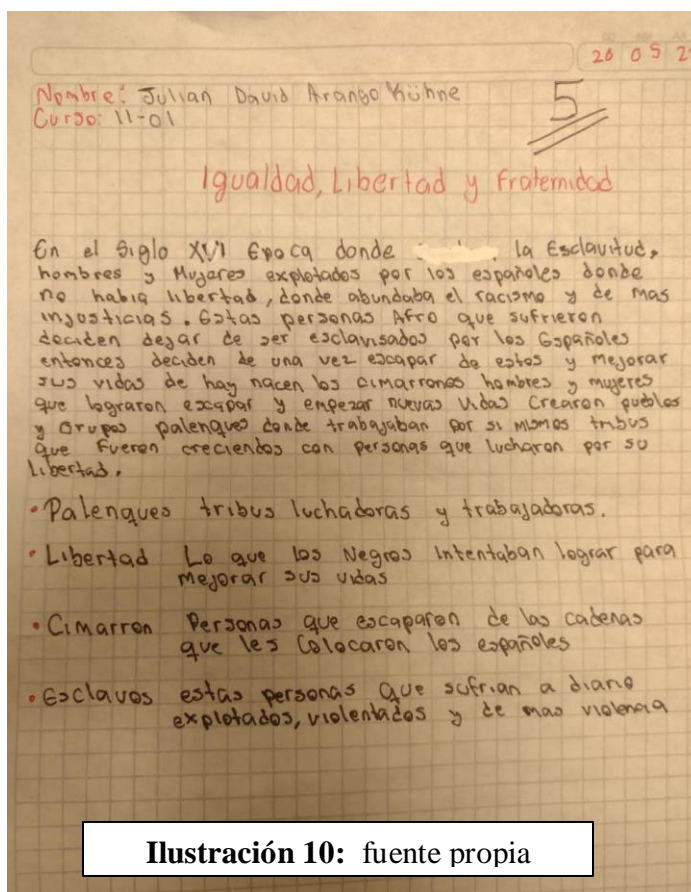 DD MM AA
20 05 2
Nombre: Julian David Arango Kühne
Curso: 11-01
5
Igualdad, Libertad y Fraternidad
En el Siglo XVI Epoca donde la Esclavitud,
hombres y Mujeres explotados por los españoles donde
no habia libertad, donde abundaba el racismo y de mas
injusticias. Estas personas Afro que sufrieron
deciden dejar de ser esclavisados por los Españoles
entonces deciden de una vez escapar de estos y mejorar
sus vidas de hay nacen los cimarrones hombres y mujeres
que lograron escapar y empezar nuevas vidas Crearon pueblos
y Grupos palenques donde trabajaban por si mismos tribus
que Fueron creciendos con personas que lucharon por su
libertad.
• Palenques tribus luchadoras y trabajadoras.
• Libertad Lo que los Negros Intentaban lograr para
mejorar sus vidas
• Cimarron Personas que escaparon de las cadenas
que les Colocaron los españoles
• Esclavos estas personas que sufrian a diario
explotados, violentados y de mas violencia
Ilustración 10: fuente propia